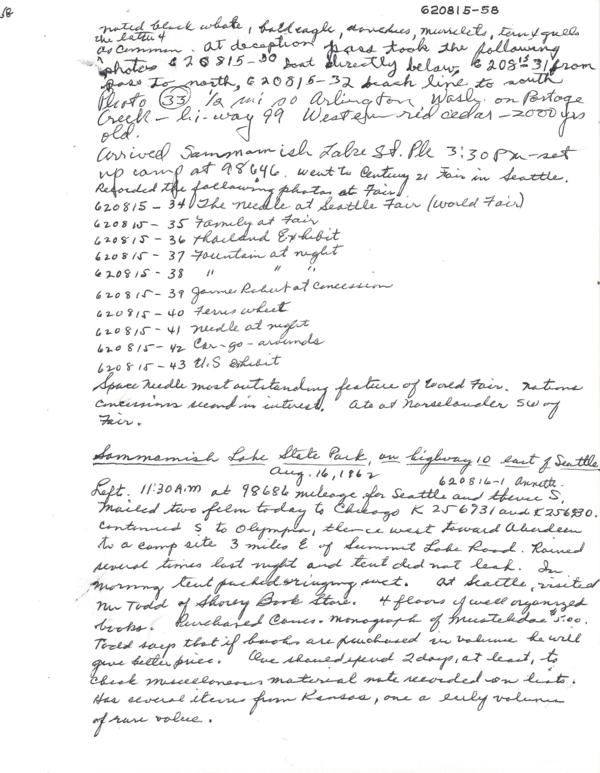 620815-58
58
noted black whale, bald eagle, murrelets, tern & gulls
the latter 4
as common. At deception pass took the following
photos 620815-30 boat directly below, 620815-31 from
pass to north, 620815-32 beach line to south
Photo 33 1/2 mi so Arlington, Wash. on Portage
Creek - hi-way 99 Western red cedar - 2000 yrs
old.
Arrived Sammamish Lake St. Pk 3:30 PM - set
up camp at 98646. Went to Century 21 Fair in Seattle.
Recorded the following photos at Fair
620815 - 34 The Needle at Seattle Fair (World Fair)
620815 - 35 Family at Fair
620815 - 36 Thailand Exhibit
620815 - 37 Fountain at night
620815 - 38 " " "
620815 - 39 James Robert at Concession
620815 - 40 Ferris wheel
620815 - 41 needle at night
620815 - 42 Car-go-arounds
620815 - 43 U.S exhibit
Space Needle most outstanding feature of World Fair. nations
concessions second in interest. Ate at Norselander SW of
Fair.
Sammamish Lake State Park, on highway 10 east of Seattle
Aug. 16, 1962
620816-1, Annette
Left 11:30 A.M at 98686 mileage for Seattle and thence S.
Mailed two film today to Chicago K 256931 and K256930.
Continued S to Olympia, thence west toward Aberdeen
to a camp site 3 miles E of Summit Lake Road. Rained
several times last night and tent did not leak. In
morning tent packed wringing wet. At Seattle, visited
Mr Todd of Shorey Book Store. 4 floors of well organized
books. Purchased Coues. Monograph of Mustelidae $5.00.
Todd says that if books are purchased in volume he will
give better price. One should spend 2 days, at least, to
check miscellaneous material not recorded on lists.
Has several items from Kansas, one a early volume
of rare value.